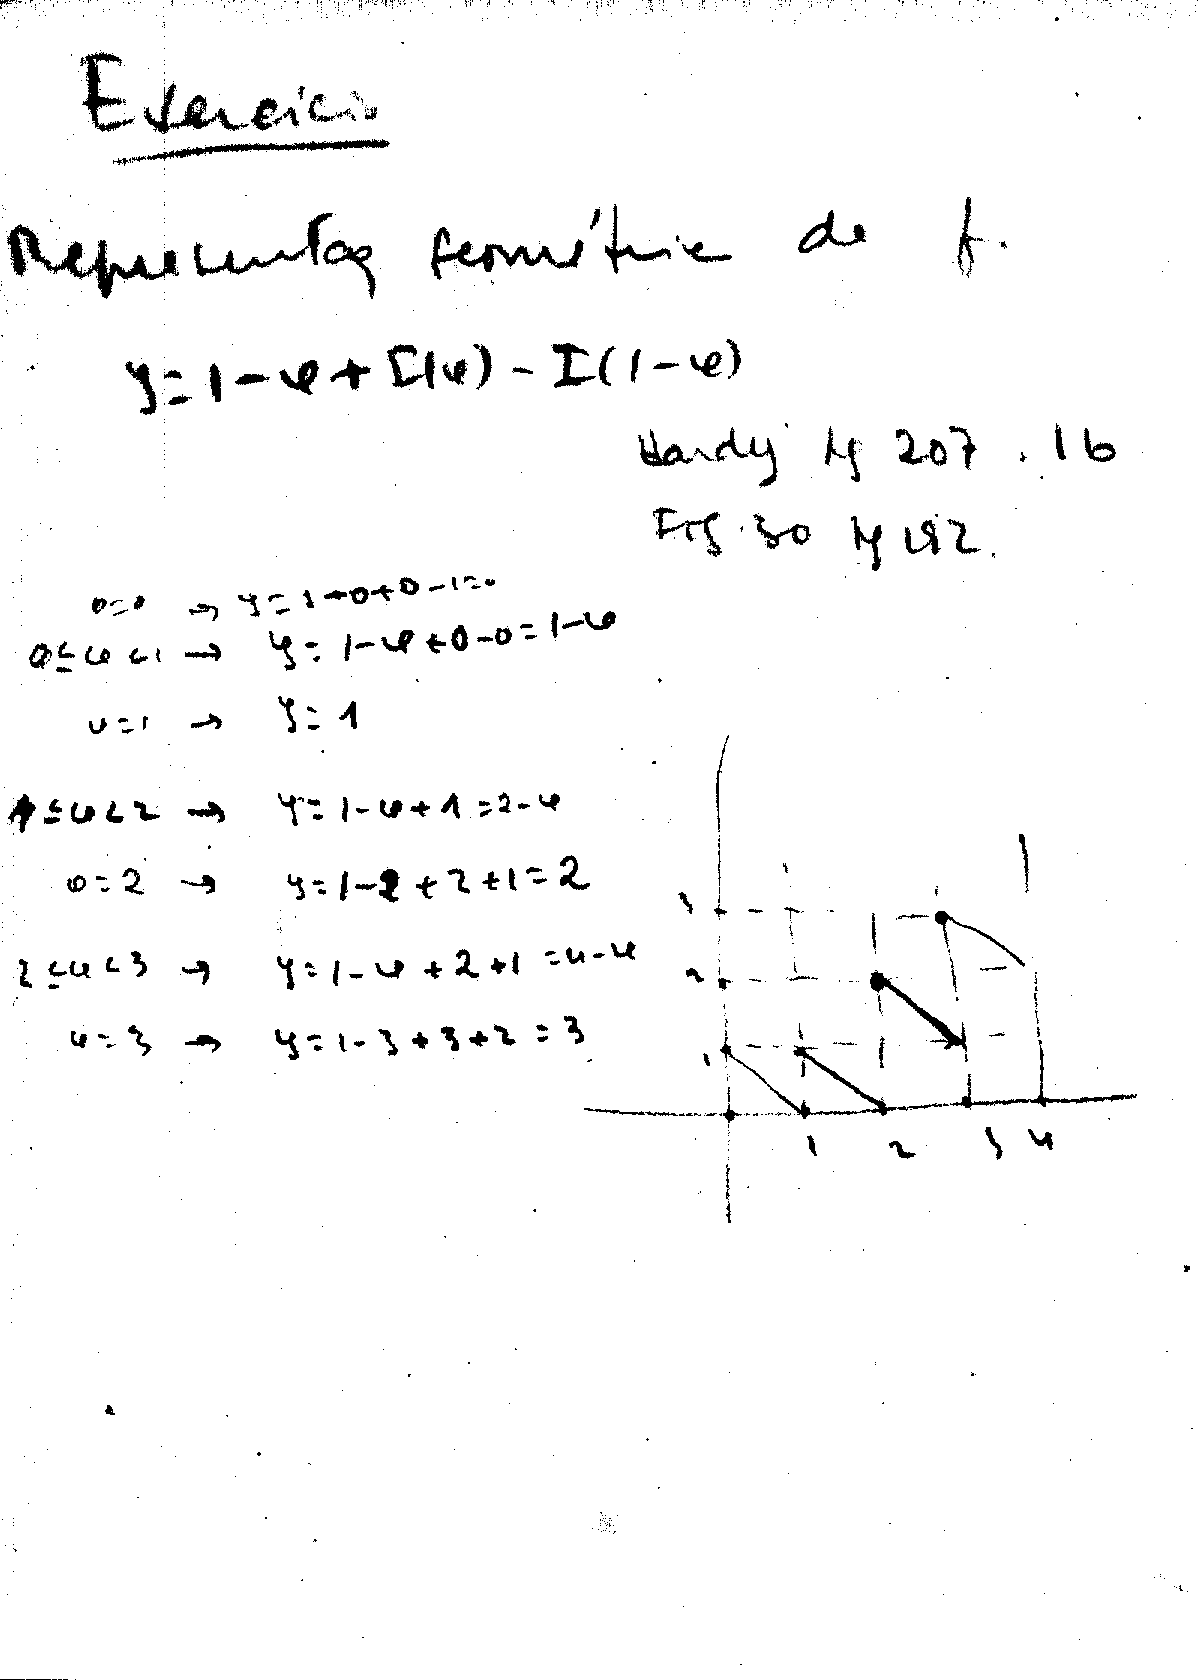 Exercício
Representaç geométric de f.
y = 1 - φ + I(φ) - I(1-φ)
Hardy pg 207 . 16
Fig. 30 pg 192.
φ=0 → y = 1-0+0-1=0
0≤φ<1 → y = 1-φ+0-0 = 1-φ
φ=1 → y = 1
1≤φ<2 → y = 1-φ+1 = 2-φ
φ=2 → y = 1-2+2+1 = 2
2≤φ<3 → y = 1-φ+2+1 = 4-φ
φ=3 → y = 1-3+3+2 = 3
3
2
1
1 2 3 4